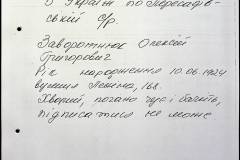 в Україні по Пересадів-
ській с/р.
Заворотнюк Олексій
Григорович
Рік народження 10.06.1924
вулиця Леніна, 168.
Хворий, погано чує і бачить,
підписатися не може